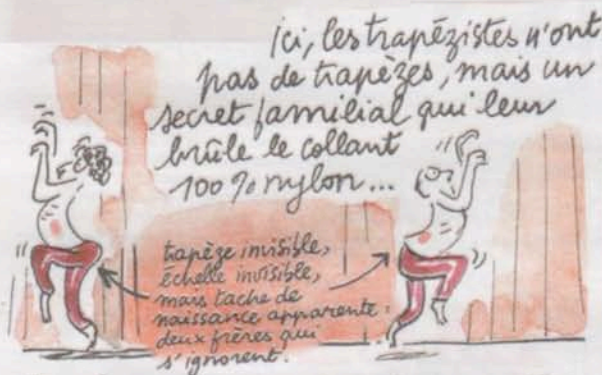 ici, les trapézistes n'ont
pas de trapèzes, mais un
secret familial qui leur
brûle le collant
100% nylon...
trapèze invisible,
échelle invisible,
mais tache de
naissance apparente :
deux frères qui
s'ignorent.